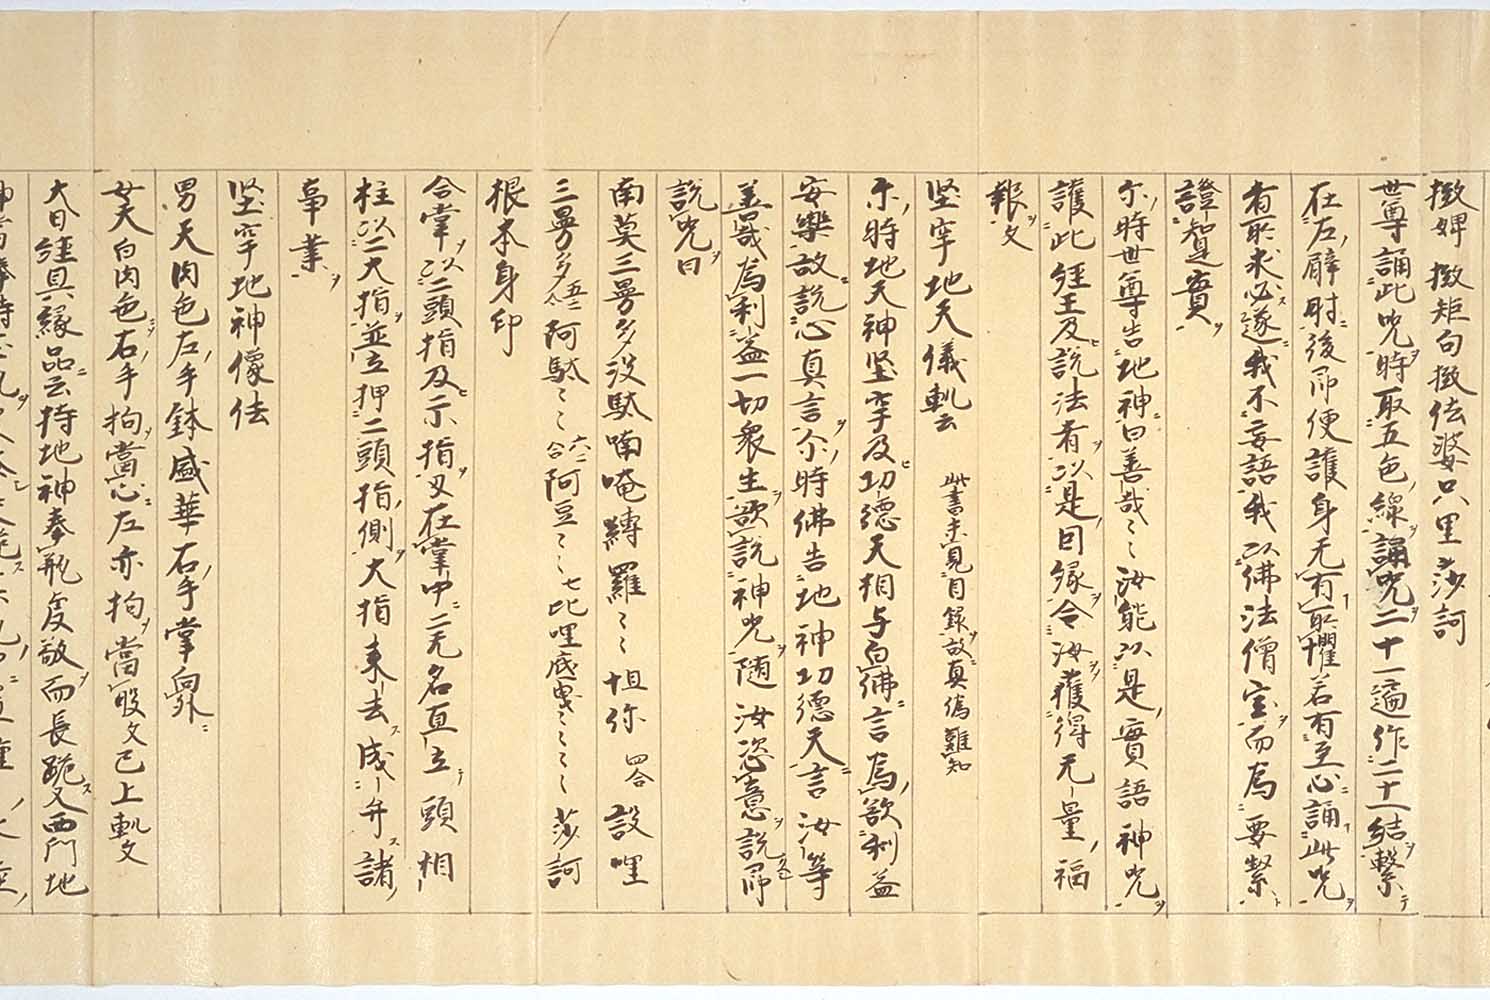 緻婢緻矩句緻佉婆只里莎訶
世尊誦此咒時取五色線誦咒二十一遍作二十一結繋
在左臂肘後即便護身无有所懼若有至心誦此咒
有所求必遂我不妄語我以佛法僧宝而為要繋
證知是實
尓時世尊告地神曰善哉〻〻汝能以是實語神咒
護此經王及説法者以是因縁令汝獲得无量福
報文
堅牢地天儀軌云 此書未見目録故真偽難知
尓時地天神堅牢及功徳天相与白佛言為欲利益
安樂故説心真言尓時佛告地神功徳天言汝等
善哉為利益一切衆生欲説神咒随汝恣意説即
説咒曰
南莫三曼多没駄喃唵縛羅〻〻怛你 四合 設哩
三曼多 五二合 阿駄〻〻 六二合 阿豆〻〻 七 比哩底曳〻〻〻 莎訶
根本身印
合掌以二頭指及示指叉在掌中二无名直立頭相
柱以二大指並立押二頭指側大指来去成弁諸
事業
堅牢地神像法
男天肉色左手鉢盛華右手掌向外
女天白肉色右手拘當心左亦拘當股文已上軌文
大日經具縁品云持地神奉瓶虔敬而長跪又西門地